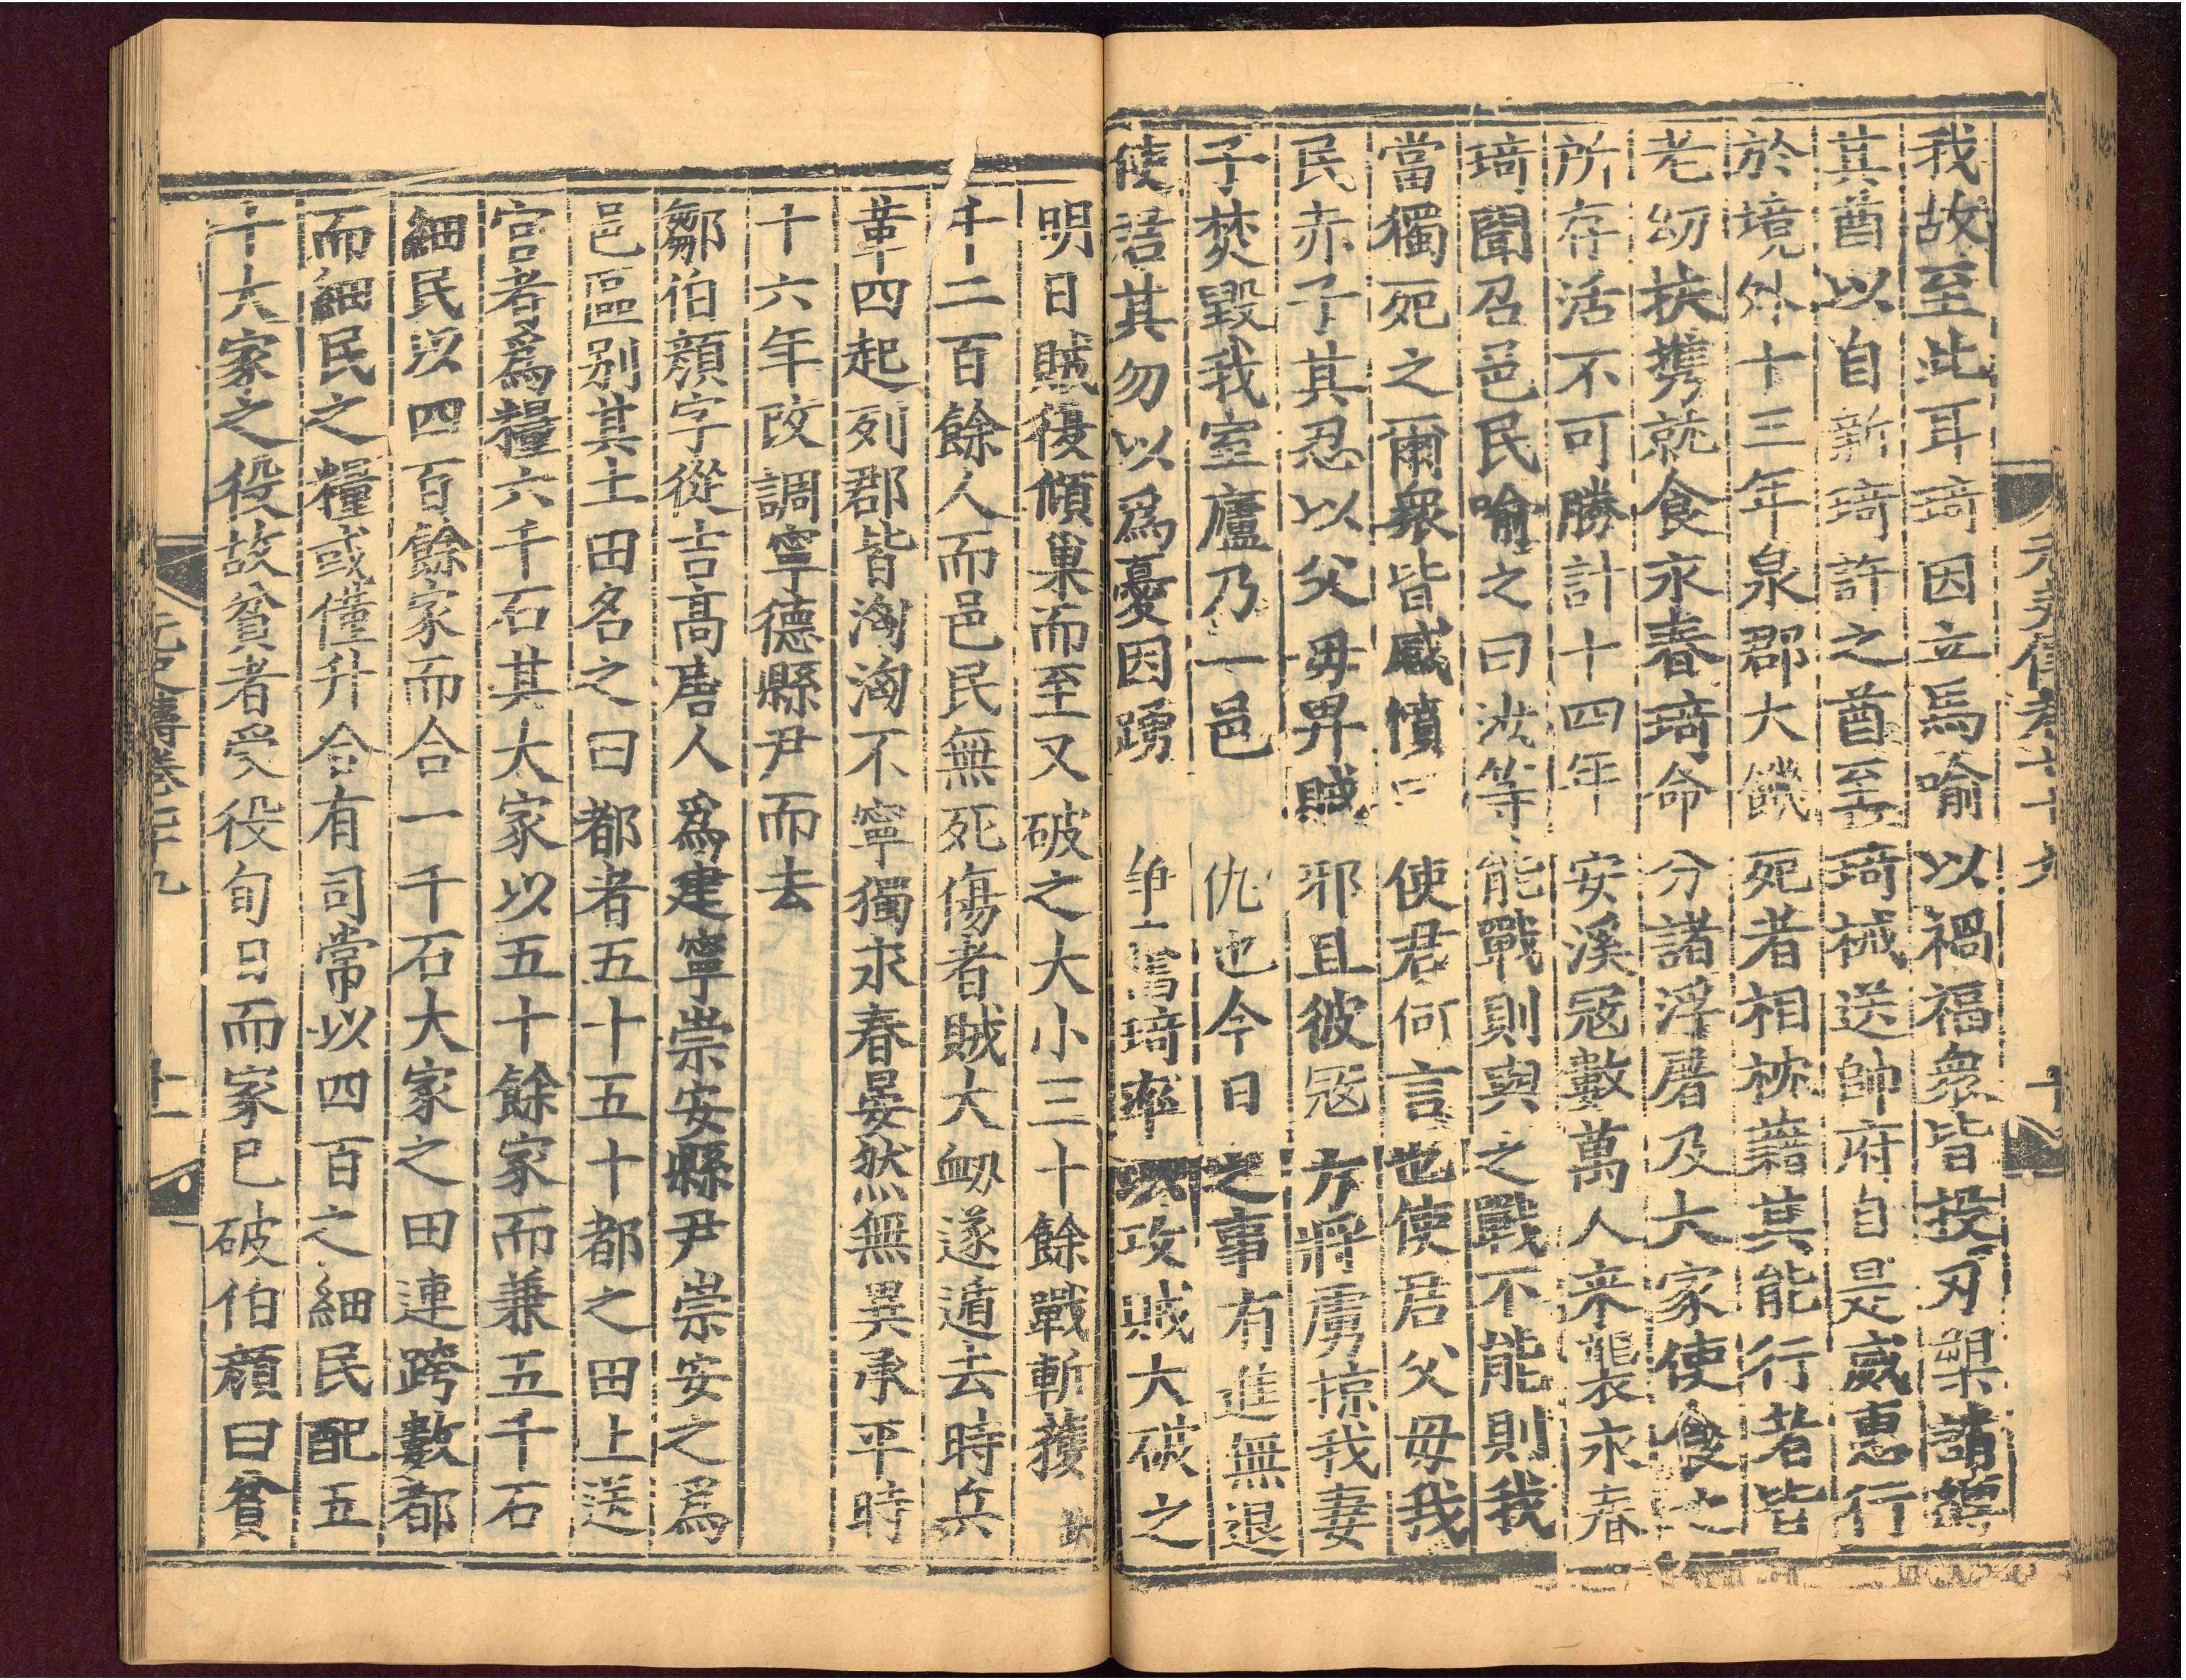 我故至此耳琦因立馬喻以禍福衆皆投刃槊請
其酋以自新琦許之酋至琦械送帥府自是威惠行
於境外十三年泉郡大饑死者相枕藉其能行者皆
老幼扶攜就食永春琦命分諸浮屠及大家使食之
所存活不可勝計十四年安溪冦數萬人來襲永春
琦聞召邑民喻之曰汝等能戰則與之戰不能則我
當獨死之爾衆皆感憤曰使君何言也使君父母我
民赤子其忍以父毋畀賊邪且彼冦方將虜掠我妻
子焚毀我室廬乃一邑仇也今日之事有進無退
使君其勿以爲憂因踴爭奮琦率攻賊大破之
明日賊復傾巢而至又破之大小三十餘戰斬獲
千二百餘人而邑民無死傷者賊大衂遂遁去時兵
革四起列郡皆洶洶不寧獨永春晏然無異承平時
十六年改調寧德縣尹而去
鄒伯顏字從吉高唐人爲建寧崇安縣尹崇安之爲
邑區别其土田名之曰都者五十五十都之田上送
官者爲糧六千石其大家以五十餘家而兼五千石
細民以四百餘家而合一千石大家之田連跨數都
而細民之糧或僅升合有司常以四百之細民配五
十大家之役故貧者受役旬日而家已破伯顏曰貧
元史傳卷七十九
十
元史傳卷七十九
十一